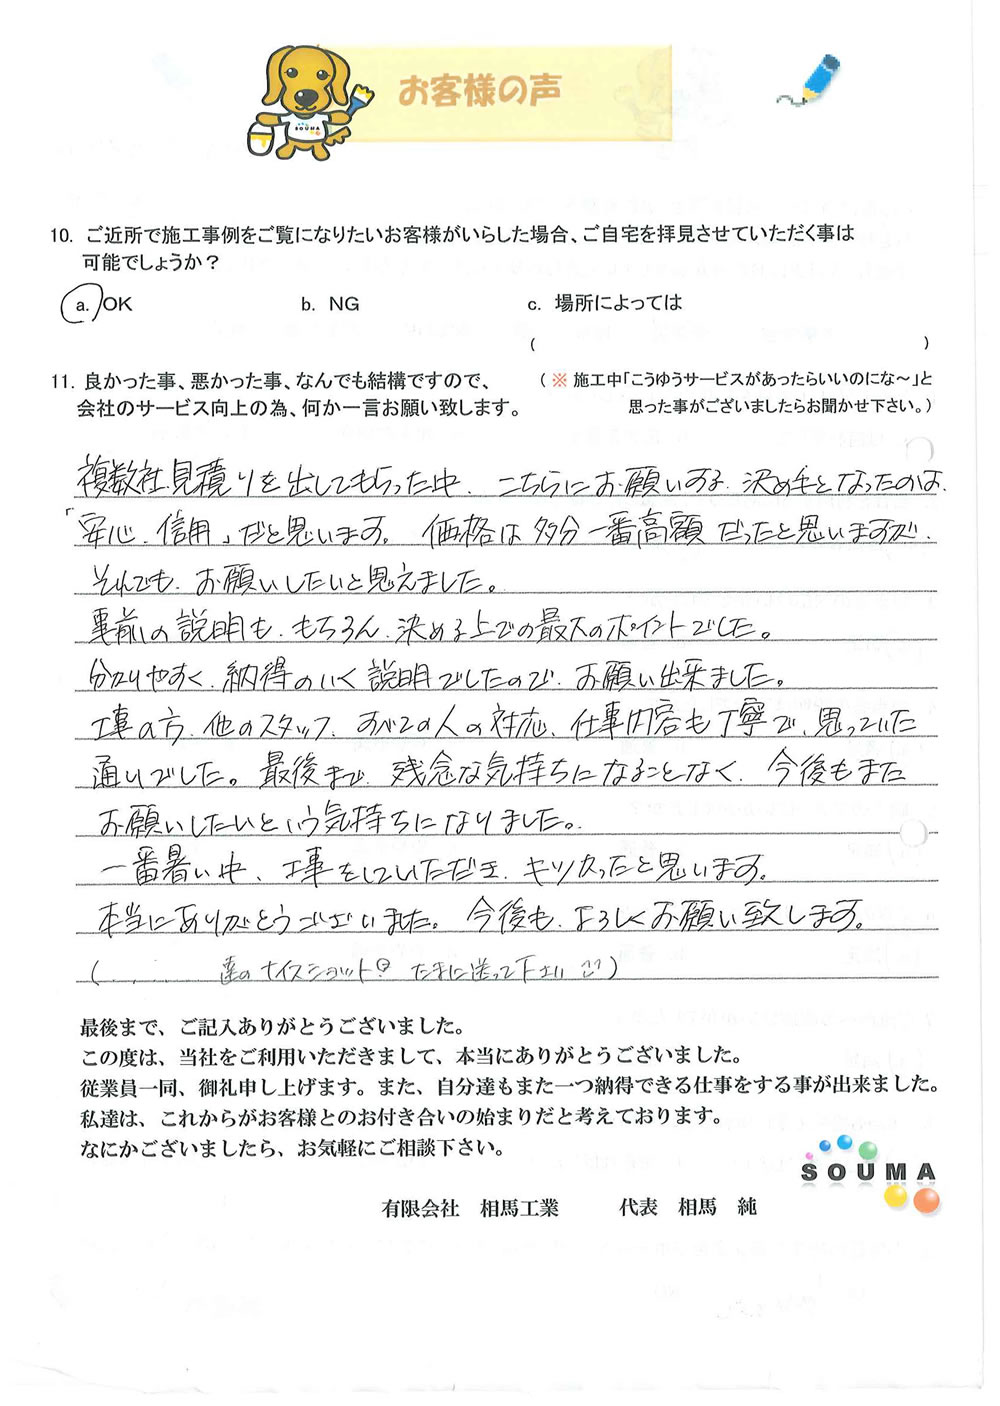 お客様の声
SOUMA
10. ご近所で施工事例をご覧になりたいお客様がいらした場合、ご自宅を拝見させていただく事は
可能でしょうか？
a. OK b. NG c. 場所によっては
( )
11. 良かった事、悪かった事、なんでも結構ですので、 （ ※ 施工中「こうゆうサービスがあったらいいのにな～」と
会社のサービス向上の為、何か一言お願い致します。 思った事がございましたらお聞かせ下さい。）
複数社見積りを出してもらった中、こちらにお願いする、決め手となったのは、
「安心、信用」だと思います。 価格は多分一番高額だったと思いますが、
それでも、お願いしたいと思えました。
事前の説明も、もちろん、決める上での最大のポイントでした。
分かりやすく、納得のいく説明でしたので、お願い出来ました。
工事の方、他のスタッフ、すべての人の対応、仕事内容も丁寧で、思っていた
通りでした。最後まで、残念な気持ちになることなく、今後もまた
お願いしたいという気持ちになりました。
一番暑い中、工事をしていただき、キツかったと思います。
本当にありがとうございました。今後も、よろしくお願い致します。
( 達のナイスショット たまに送って下さい )
最後まで、ご記入ありがとうございました。
この度は、当社をご利用いただきまして、本当にありがとうございました。
従業員一同、御礼申し上げます。また、自分達もまた一つ納得できる仕事をする事が出来ました。
私達は、これからがお客様とのお付き合いの始まりだと考えております。
なにかございましたら、お気軽にご相談下さい。
SOUMA
有限会社 相馬工業 代表 相馬 純